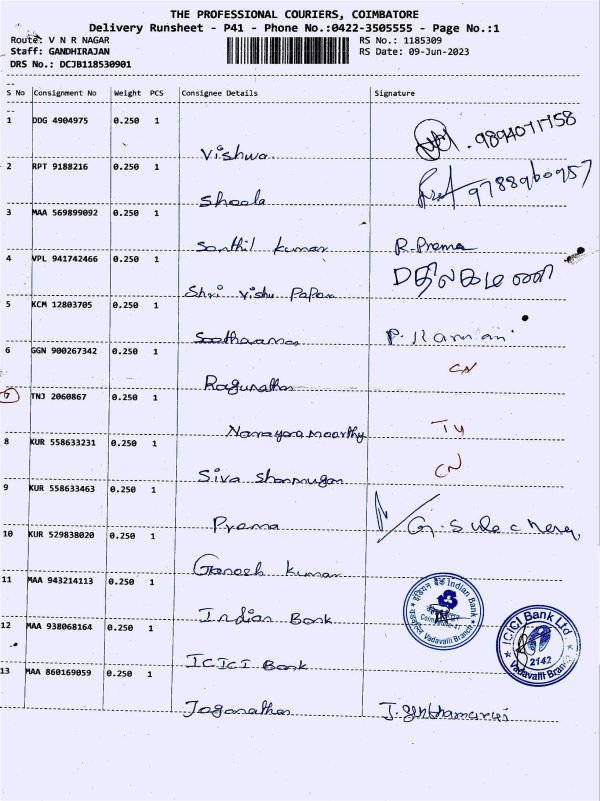 THE PROFESSIONAL COURIERS, COIMBATORE
Delivery Runsheet - P41 - Phone No.:0422-3505555 - Page No.:1
Route: V N R NAGAR RS No.: 1185309
Staff: GANDHIRAJAN RS Date: 09-Jun-2023
DRS No.: DCJB118530901
S No Consignment No Weight PCS Consignee Details Signature
1 DDG 4904975 0.250 1
Vishwa 9894071758
2 RPT 9188216 0.250 1
Sheela 9788960957
3 MAA 569899092 0.250 1
Santhil kumar R. Prema
4 VPL 941742466 0.250 1
Shri Vishu Papan
5 KCM 12803705 0.250 1
P. Ramani
6 GGN 900267342 0.250 1
Ragunathan CN
7 TNJ 2060867 0.250 1
Narayana moorthy
8 KUR 558633231 0.250 1
Siva Shanmugan CN
9 KUR 558633463 0.250 1
Prema
10 KUR 529838020 0.250 1
Ganesh kumar
11 MAA 943214113 0.250 1
Indian Bank
Indian Bank
Vadavalli Branch
12 MAA 938068164 0.250 1
ICICI Bank
ICICI Bank Ltd
2142
Vadavalli Branch
13 MAA 860169059 0.250 1
Jaganathan